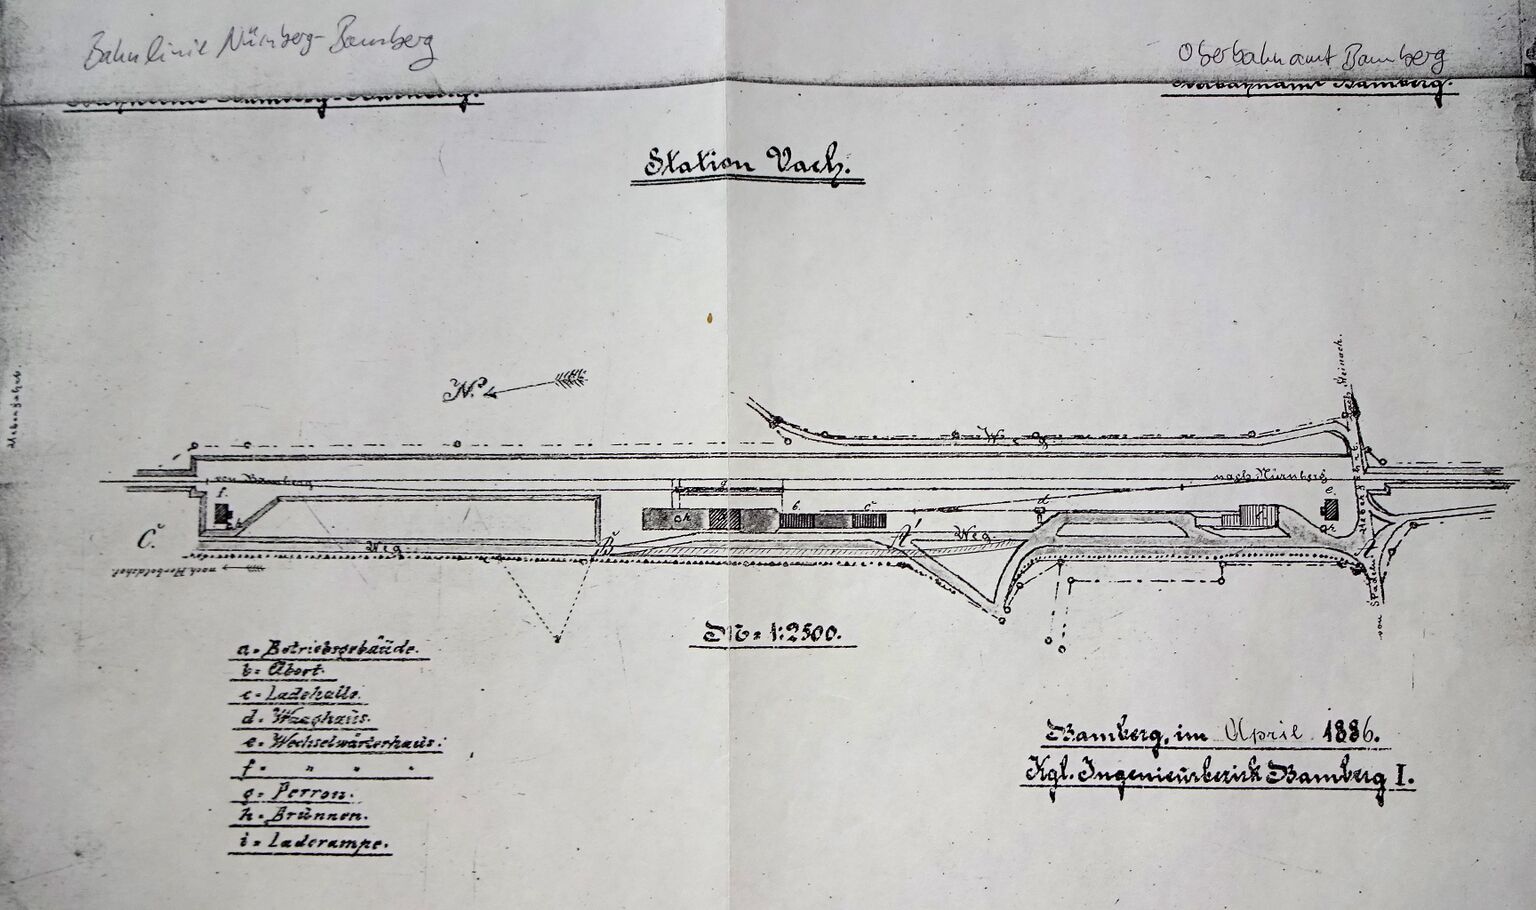 Bahnlinie Nürnberg-Bamberg
Oberbahnamt Bamberg
Bahnlinie Bamberg-Nürnberg.
Oberbahnamt Bamberg.
Station Vach.
nach Steinach.
N.
Weg
von Bamberg
nach Nürnberg
f.
g
d
e.
a h
b.
c
h
i
C.
B
A
Weg
Weg
A
nach Herboldshof
von Stadeln
M = 1:2500.
a = Betriebsgebäude.
b = Abort.
c = Ladehalle.
d = Waaghaus.
e = Wechselwärterhaus.
f = " " "
g = Perron.
h = Brunnen.
i = Laderampe.
Bamberg, im April 1886.
Kgl. Ingenieurbezirk Bamberg I.